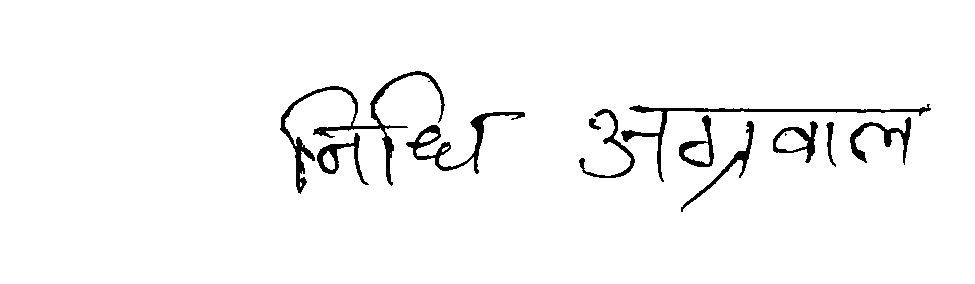 निधि अग्रवाल